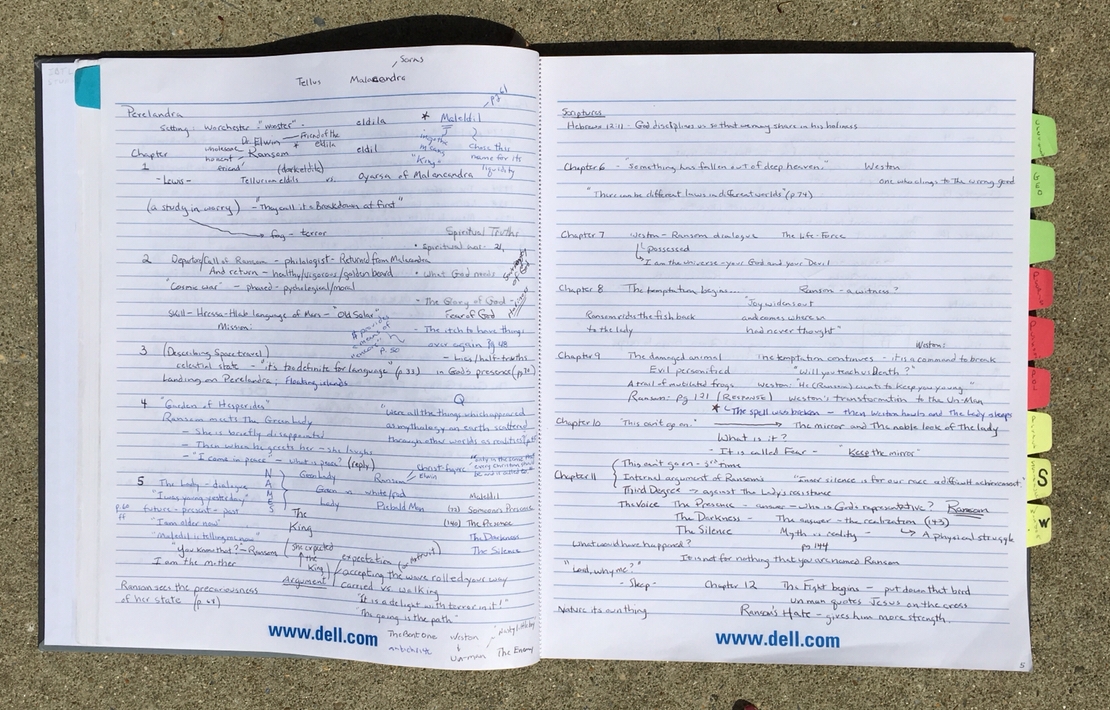 Sorns
Tellus Malacandra
Perelandra
pg 61
Setting: Worchester: "wooster" - eldila * Maleldil
Dr. Elwin - Friend of the eldila
Chapter Ransom eldil "King" Chose this name for its liquidity
1 (dark eldila)
- Lewis - Tellurian eldils vs. Oyarsa of Malancandra
(a study in worry) - "They call it a Breakdown at first"
fog - terror
Spiritual Truths
• Spiritual war - 21,
2 Departure/Call of Ransom - philologist - Returned from Malacandra
And return - healthy/vigorous/golden beard • what God needs
"Cosmic war" - phased - pychological/moral
Sovereignty of God
- The Glory of God -
Skill - Hressa-Hlab language of Mars - "Old Solar" Fear of God
Mission: - The itch to have things over again pg 48
p. 50
3 (Describing Space travel) - Lies/half-truths
celestial state - "it's too definite for language" (p. 33) in God's presence
Landing on Perelandra; Floating islands
4 "Garden of Hesperides" Q
Ransom meets The Green Lady "were all the things which appeared
- She is briefly disappointed as mythology on earth scattered
- Then when he greets her - she laughs through other worlds as realities"
- "I come in peace" - what is peace? (reply)
5 The Lady - dialogue NAMES Green Lady Ransom Elwin
"I was young yesterday" Green vs white/red Maleldil
p. 60 ff future - present - past Lady Piebald Man Someone's Presence
"I am older now" The King (140) The Presence
"Maleldil is telling me now" The Darkness
"you know that?" - Ransom (she expected the King) expectation The Silence
I am the Mother accepting the wave rolled your way
Argument carried vs. walking
Ransom sees the precariousness "It is a delight with terror in it!"
of her state (p. 68) "The going is the path"
www.dell.com
The Bent One Weston
Un-man The Enemy
Scriptures
Hebrews 12:11 - God disciplines us so that we may share in his holiness
Chapter 6 - "Something has fallen out of deep heaven." Weston
one who clings to the wrong good
"There can be different laws in different worlds" (p. 74)
Chapter 7 Weston - Ransom dialogue The Life-Force
Possessed
I am the universe - your God and your Devil
Chapter 8 The temptation begins... Ransom - a witness?
"Joy widens out
Ransom rides the fish back and comes where in
to the lady had never thought"
Weston:
Chapter 9 The damaged animal The temptation continues - it is a command to break
Evil personified "Will you teach us Death?"
A trail of mutilated frogs Weston: "He (Ransom) wants to keep you young"
Ransom: pg 121 (RESPONSE) Weston's transformation to the Un-Man
* The spell was broken - then Weston howls and the Lady sleeps
Chapter 10 This can't go on." The mirror and the noble look of the lady
What is it?
- It is called Fear - "Keep the mirror"
Chapter 11 This can't go on - 5th time
Internal argument of Ransom's "Inner silence is for our race a difficult achievement."
Third Degree -> against the Lady's resistance
The Voice The Presence - answer - who is God's representative? Ransom
The Darkness - The answer - the realization (143)
The Silence Myth is reality - A physical struggle
What would have happened? pg 144
It is not for nothing that you are named Ransom
"Lord, why me?"
- Sleep - Chapter 12 The Fight begins - put down that bird
Un man quotes Jesus on the cross
Nature is its own thing Ransom's Hate - gives him more strength.
www.dell.com
5
GEO
S
W